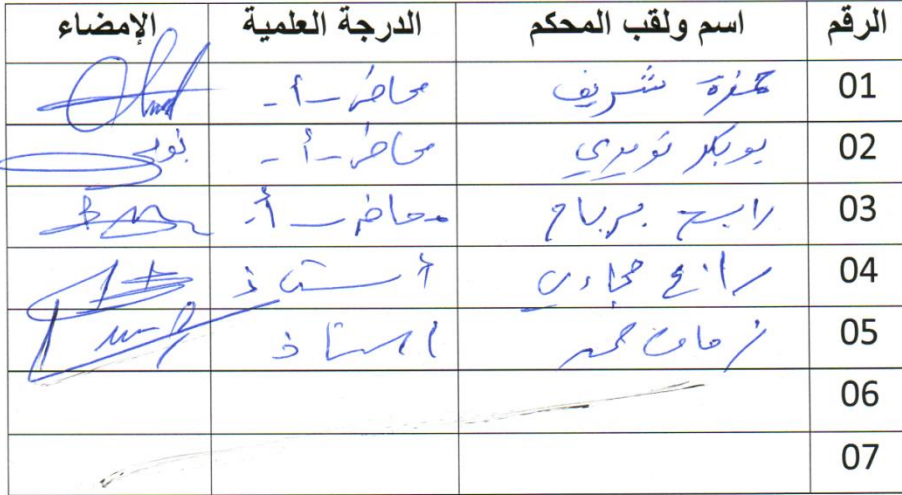 الرقم اسم ولقب المحكم الدرجة العلمية الإمضاء
01 شريف محاضر -أ-
02 بوبكر نويري محاضر -أ-
03 رابح برباح محاضر -أ-
04 رابح أستاذ
05 زمام محمد أستاذ
06
07